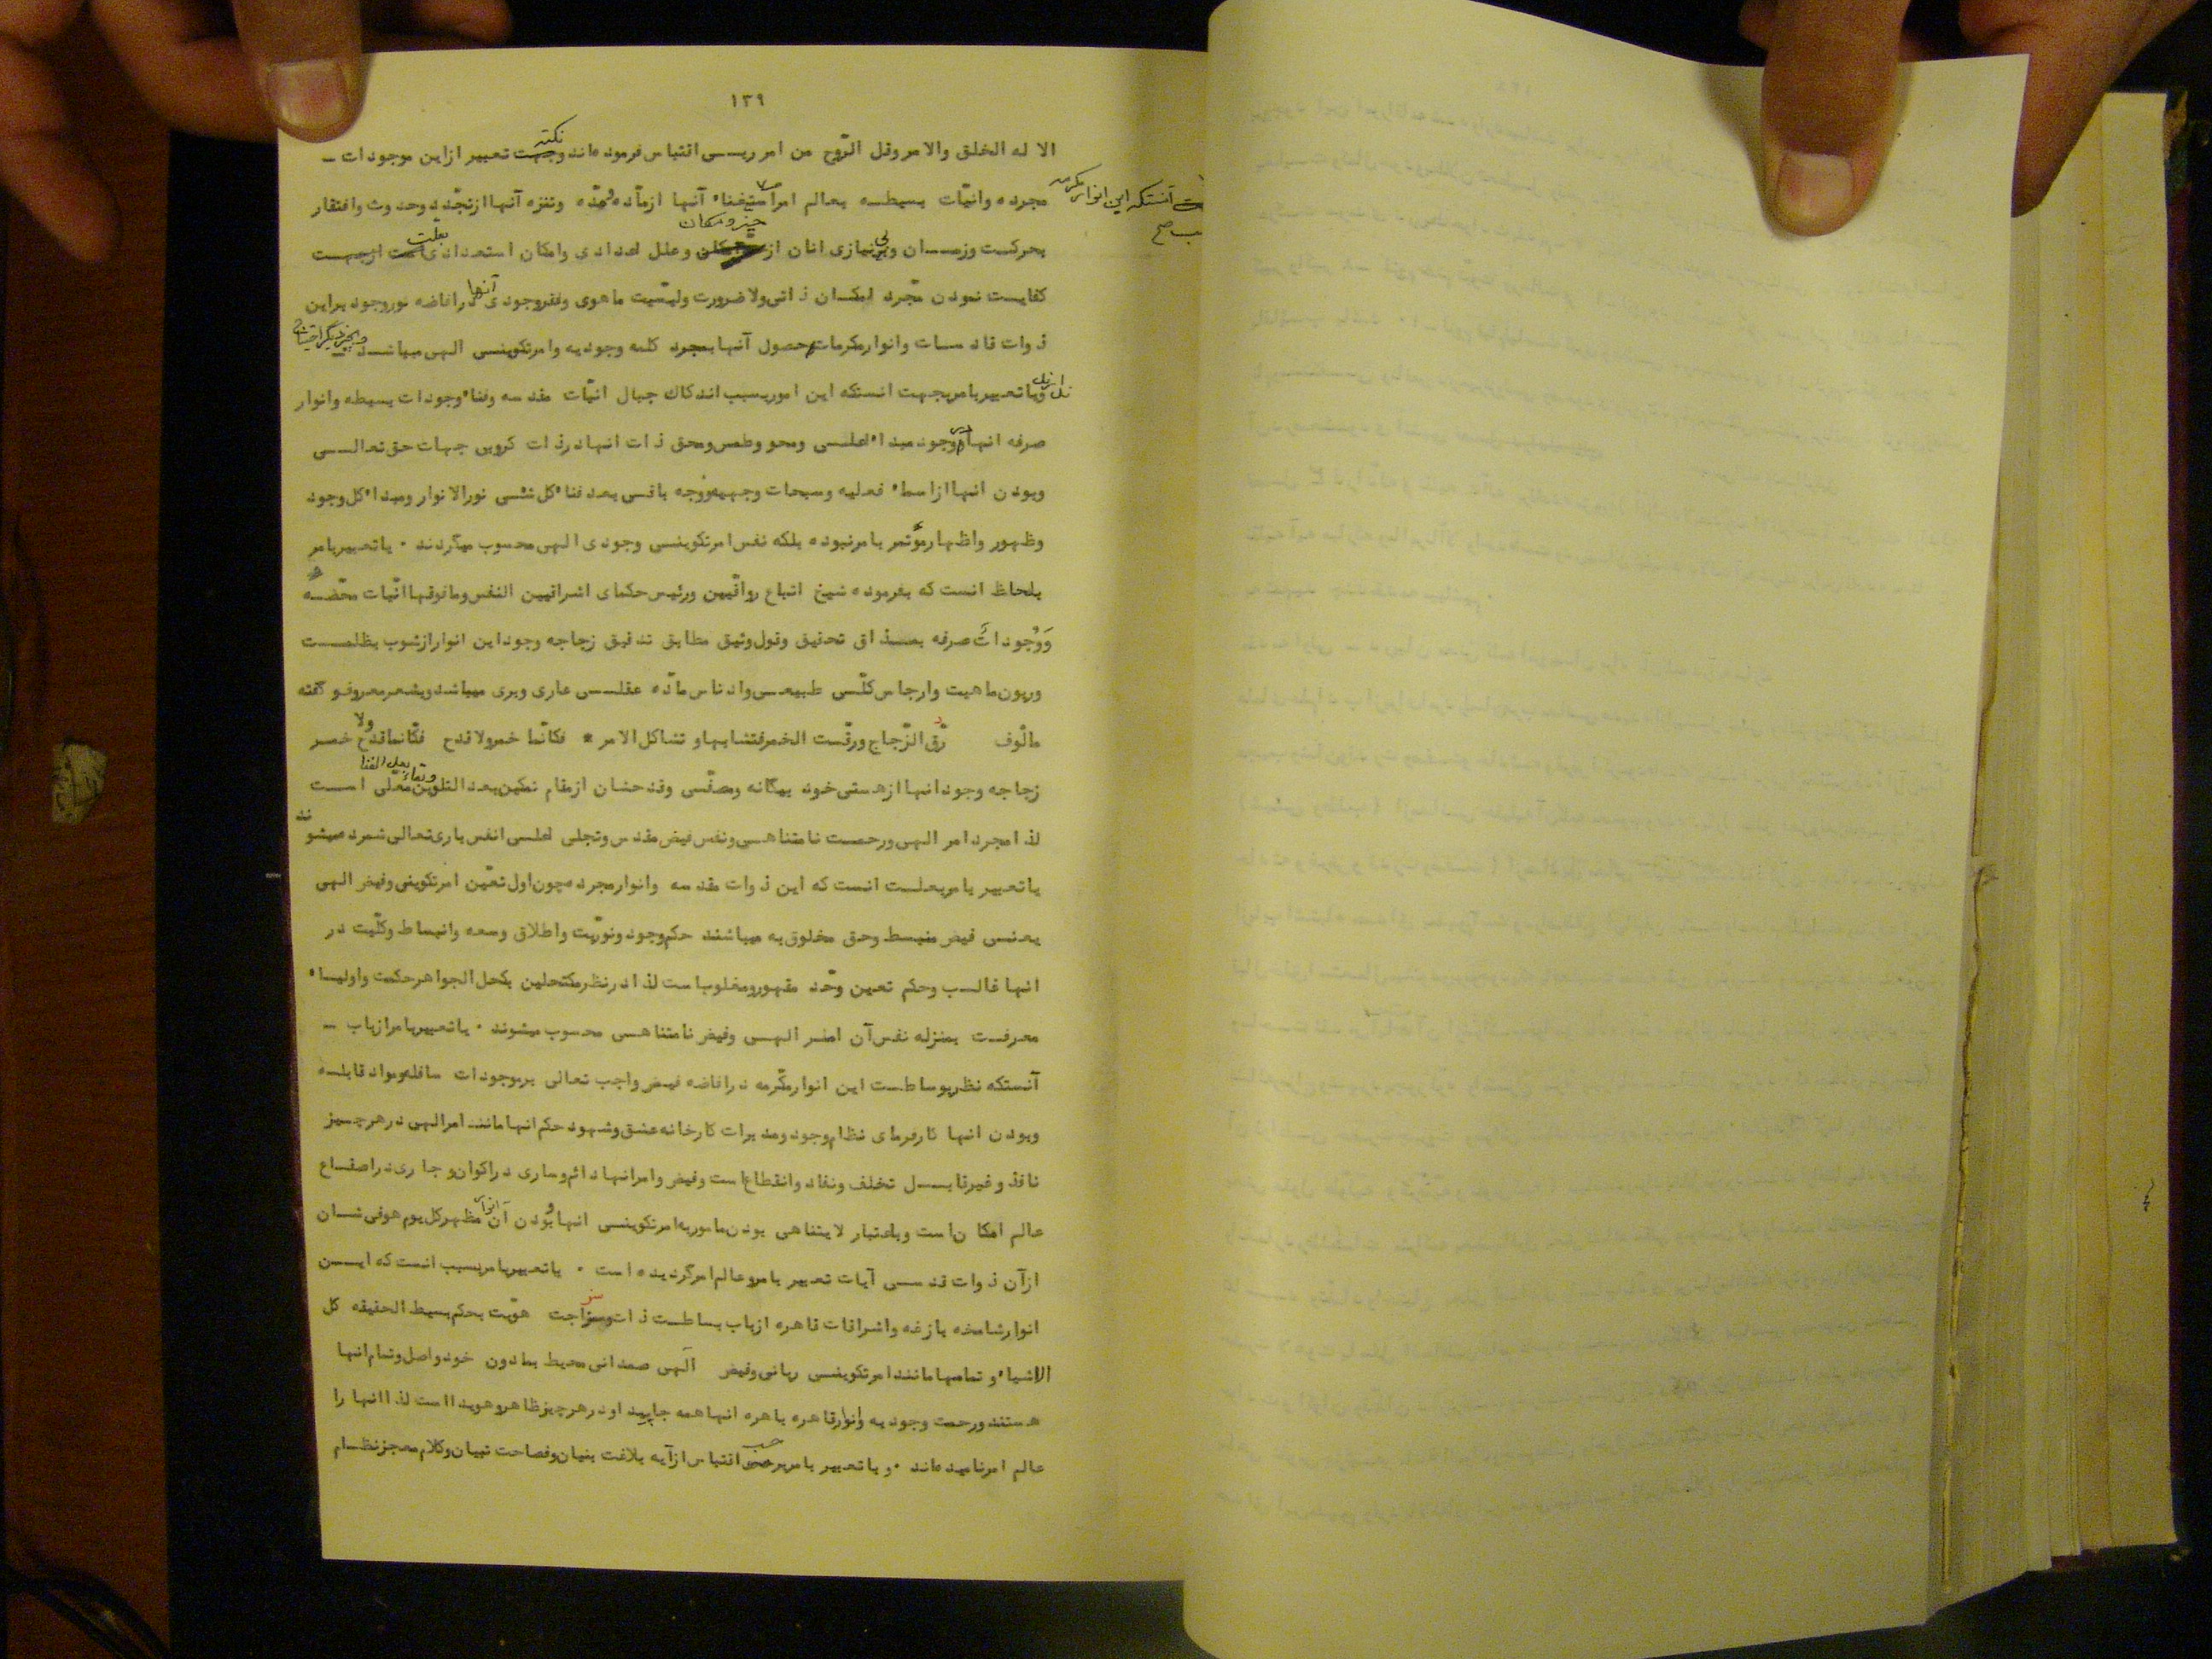 ١٣٩
الا له الخلق والامر وقل الرّوح من امر ربــی اقتباس فرموده‌اند و نکته تعبیر از این موجودات ــ
مجرده وانیّات بسیطــه بعالم امر استغناء آنها از مادّه و مدّه وتنزه آنها از تجدّد وحدوث وافتقار
آنستکه این انوار مکرمه
بحرکــت وزمــان وبی نیازی انان از حیز و مکان وعلل اعدادی وامکان استعدادی بعلت
کفایــت نمودن مجّرد امکــان ذاتی ولا ضرورت ولیسّیت ماهوی وفقر وجودی آنها در افاضه نور وجود براین
ذوات قادسات وانوار مکرمات و حصول آنها بمجرد کلمه وجودیه وامر تکوینــی الهی میباشــد
ویا تعبیر بامر بجهت انستکه این امور بسبب اندکاک جبال انیّات مقدسه وفناء وجودات بسیطه وانوار
صرفه انها در وجود مبداء اعلــی ومحو وطمس ومحق ذات انها در ذات کروبی جهات حق تعالــی
وبودن انها از اسماء فعلیه وسبحات وجهیه ووجه باقــی بعد فناء کل شئــی نور الانوار ومبداء کل وجود
وظهور واظهار مؤتمر بامر نبوده بلکه نفس امر تکوینــی وجودی الهی محسوب میگردند . یا تعبیر بامر
بلحاظ انست که بفرموده شیخ اتباع رواقّیین ورئیس حکمای اشراقیین النفس ومافوقها انّیات محّضــه
وَوُجودات صرفه بمــذاق تحقیق وقول وثیق مطابق تدقیق زجاجه وجود این انوار از شوب بظلمــت
وریون ماهیت وارجاس کلّــی طبیعــی وادناس مادّه عقلــی عاری وبری میباشد وبشعر معروف و گفته
مالوف رّق الزّجاج ورقّــت الخمر فتشابها و تشاکل الامر * فکانّما خمر ولا قدح فکّانما قدح ولا خمــر
زجاجه وجود انها از هستی خود بیگانه ومصفّــی وقدحشان از مقام تمکین بعد التلوین وبقاء بعد الفنا معلی اســت
لذا مجرد امر الهی ورحمــت نامتناهــی ونفس فیض مقدس وتجلی اعلــی انفس باری تعالی شمرده میشوند
یا تعبیر بامر بعلــت انست که این ذوات مقدسه وانوار مجرده چون اول تعّین امر تکوینی وفیض الهی
یعنــی فیض منبسط وحق مخلوق به میباشند حکم وجود ونوریّت واطلاق وسعه وانبساط وکلّیت در
انها غالــب وحکم تعین وحّد مقهور ومغلوب است لذا در نظر مکتحلین بکحل الجواهر حکمت واولیــاء
معرفــت بمنزله نفس آن امــر الهــی وفیض نامتناهــی محسوب میشوند . یا تعبیر بامر از باب ــ
آنستکه نظر بوساطــت این انوار مکّرمه در افاضه فیــض واجب تعالی بر موجودات سافله ومواد قابلــه
وبودن انها کارفرمای نظام وجود ومدبرات کارخانه عشق وشهود حکم انها مانند امر الهی در هر چــیز
نافذ وغیر قابــل تخلف ونفاد وانقطاع است وفیض وامر انها دائم وساری در اکوان و جاری در اصقــاع
عالم امکان است وباعتبار لایتناهی بودن مامور به امر تکوینــی انها و بودن آن انوار مظهر کل یوم هو فی شــان
از آن ذوات قدســی آیات تعبیر بامر وعالم امر گردیده است . یا تعبیر بامر بسبب انست که ایــن
انوار شامخه بازغه واشراقات قاهره از باب بساطــت ذات وسزاجت هوّیت بحکم بسیط الحقیقه کل
الاشیاء و تمامها مانند امر تکوینــی ربانی وفیض آلهی صمدانی محیط بمادون خود واصل وتمام انها
هستند ورحمت وجودیه وانوار قاهره باهره انها همه جا پدید او در هر چیز ظاهر وهویدا است لذا انها را
عالم امر نامیده‌اند . و یا تعبیر بامر بر حسب اقتباس از آیه بلاغت بنیان وفصاحت تبیان وکلام معجز نظــام